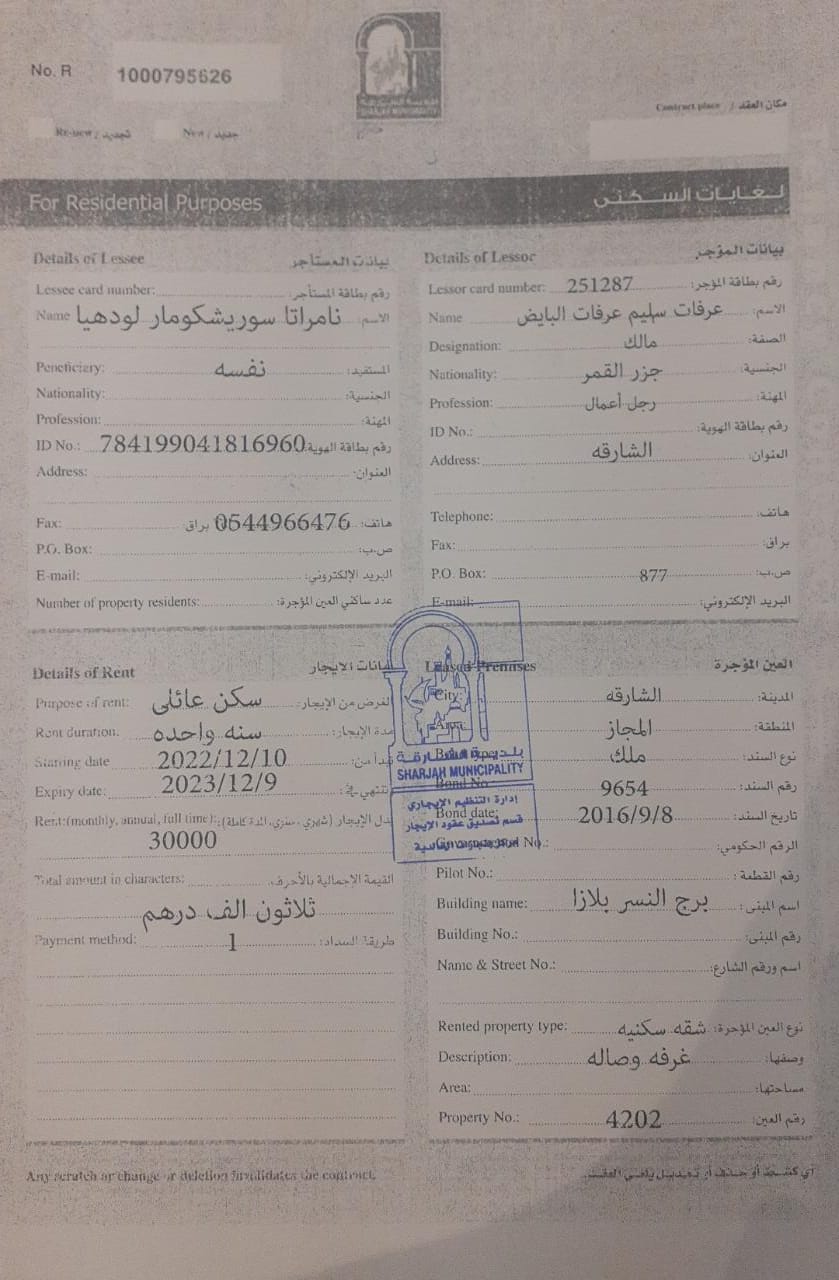 No. R 1000795626
بلدية الشارقة
SHARJAH MUNICIPALITY
Contract place / مكان العقد
Re-new / تجديد New / جديد
For Residential Purposes لغايات السكنى
Details of Lessee بيانات المستأجر
Lessee card number: رقم بطاقة المستأجر:
Name نامراتا سوريشكومار لودهيا الاسم:
Peneficiary: نفسه المستفيد:
Nationality: الجنسية:
Profession: المهنة:
ID No.: 784199041816960 رقم بطاقة الهوية:
Address: العنوان:
Fax: براق 0544966476 هاتف:
P.O. Box: ص.ب:
E-mail: البريد الإلكتروني:
Number of property residents: عدد ساكني العين المؤجرة:
Details of Lessor بيانات المؤجر
Lessor card number: 251287 رقم بطاقة المؤجر:
Name عرفات سليم عرفات البايض الاسم:
Designation: مالك الصفة:
Nationality: جزر القمر الجنسية:
Profession: رجل أعمال المهنة:
ID No.: رقم بطاقة الهوية:
Address: الشارقه العنوان:
Telephone: هاتف:
Fax: براق:
P.O. Box: 877 ص.ب:
E-mail: البريد الإلكتروني:
Details of Rent بيانات الايجار
Purpose of rent: سكن عائلى الغرض من الإيجار:
Rent duration. سنه واحده مدة الإيجار:
Starting date 2022/12/10 تبدأ من:
Expiry date: 2023/12/9 تنتهي في:
Rent:(monthly, annual, full time): بدل الإيجار (شهري، سنوي، المدة كاملة):
30000
Total amount in characters: القيمة الإجمالية بالأحرف:
ثلاثون الف درهم
Payment method: 1 طريقة السداد:
Leased Premises العين المؤجرة
City: الشارقه المدينة:
Area: المجاز المنطقة:
Bond type: ملك نوع السند:
Bond No. 9654 رقم السند:
Bond date: 2016/9/8 تاريخ السند:
Governmental No.: الرقم الحكومي:
Pilot No.: رقم القطعة:
Building name: برج النسر بلازا اسم المبنى:
Building No.: رقم المبنى:
Name & Street No.: اسم ورقم الشارع:
Rented property type: شقه سكنيه نوع العين المؤجرة:
Description: غرفه وصاله وصفها:
Area: مساحتها:
Property No.: 4202 رقم العين:
بلدية الشارقة
SHARJAH MUNICIPALITY
إدارة التنظيم الإيجاري
قسم تصديق عقود الإيجار
Any scratch or change or deletion invalidates the contract. أي كشط أو حذف أو تعديل يلغي العقد.